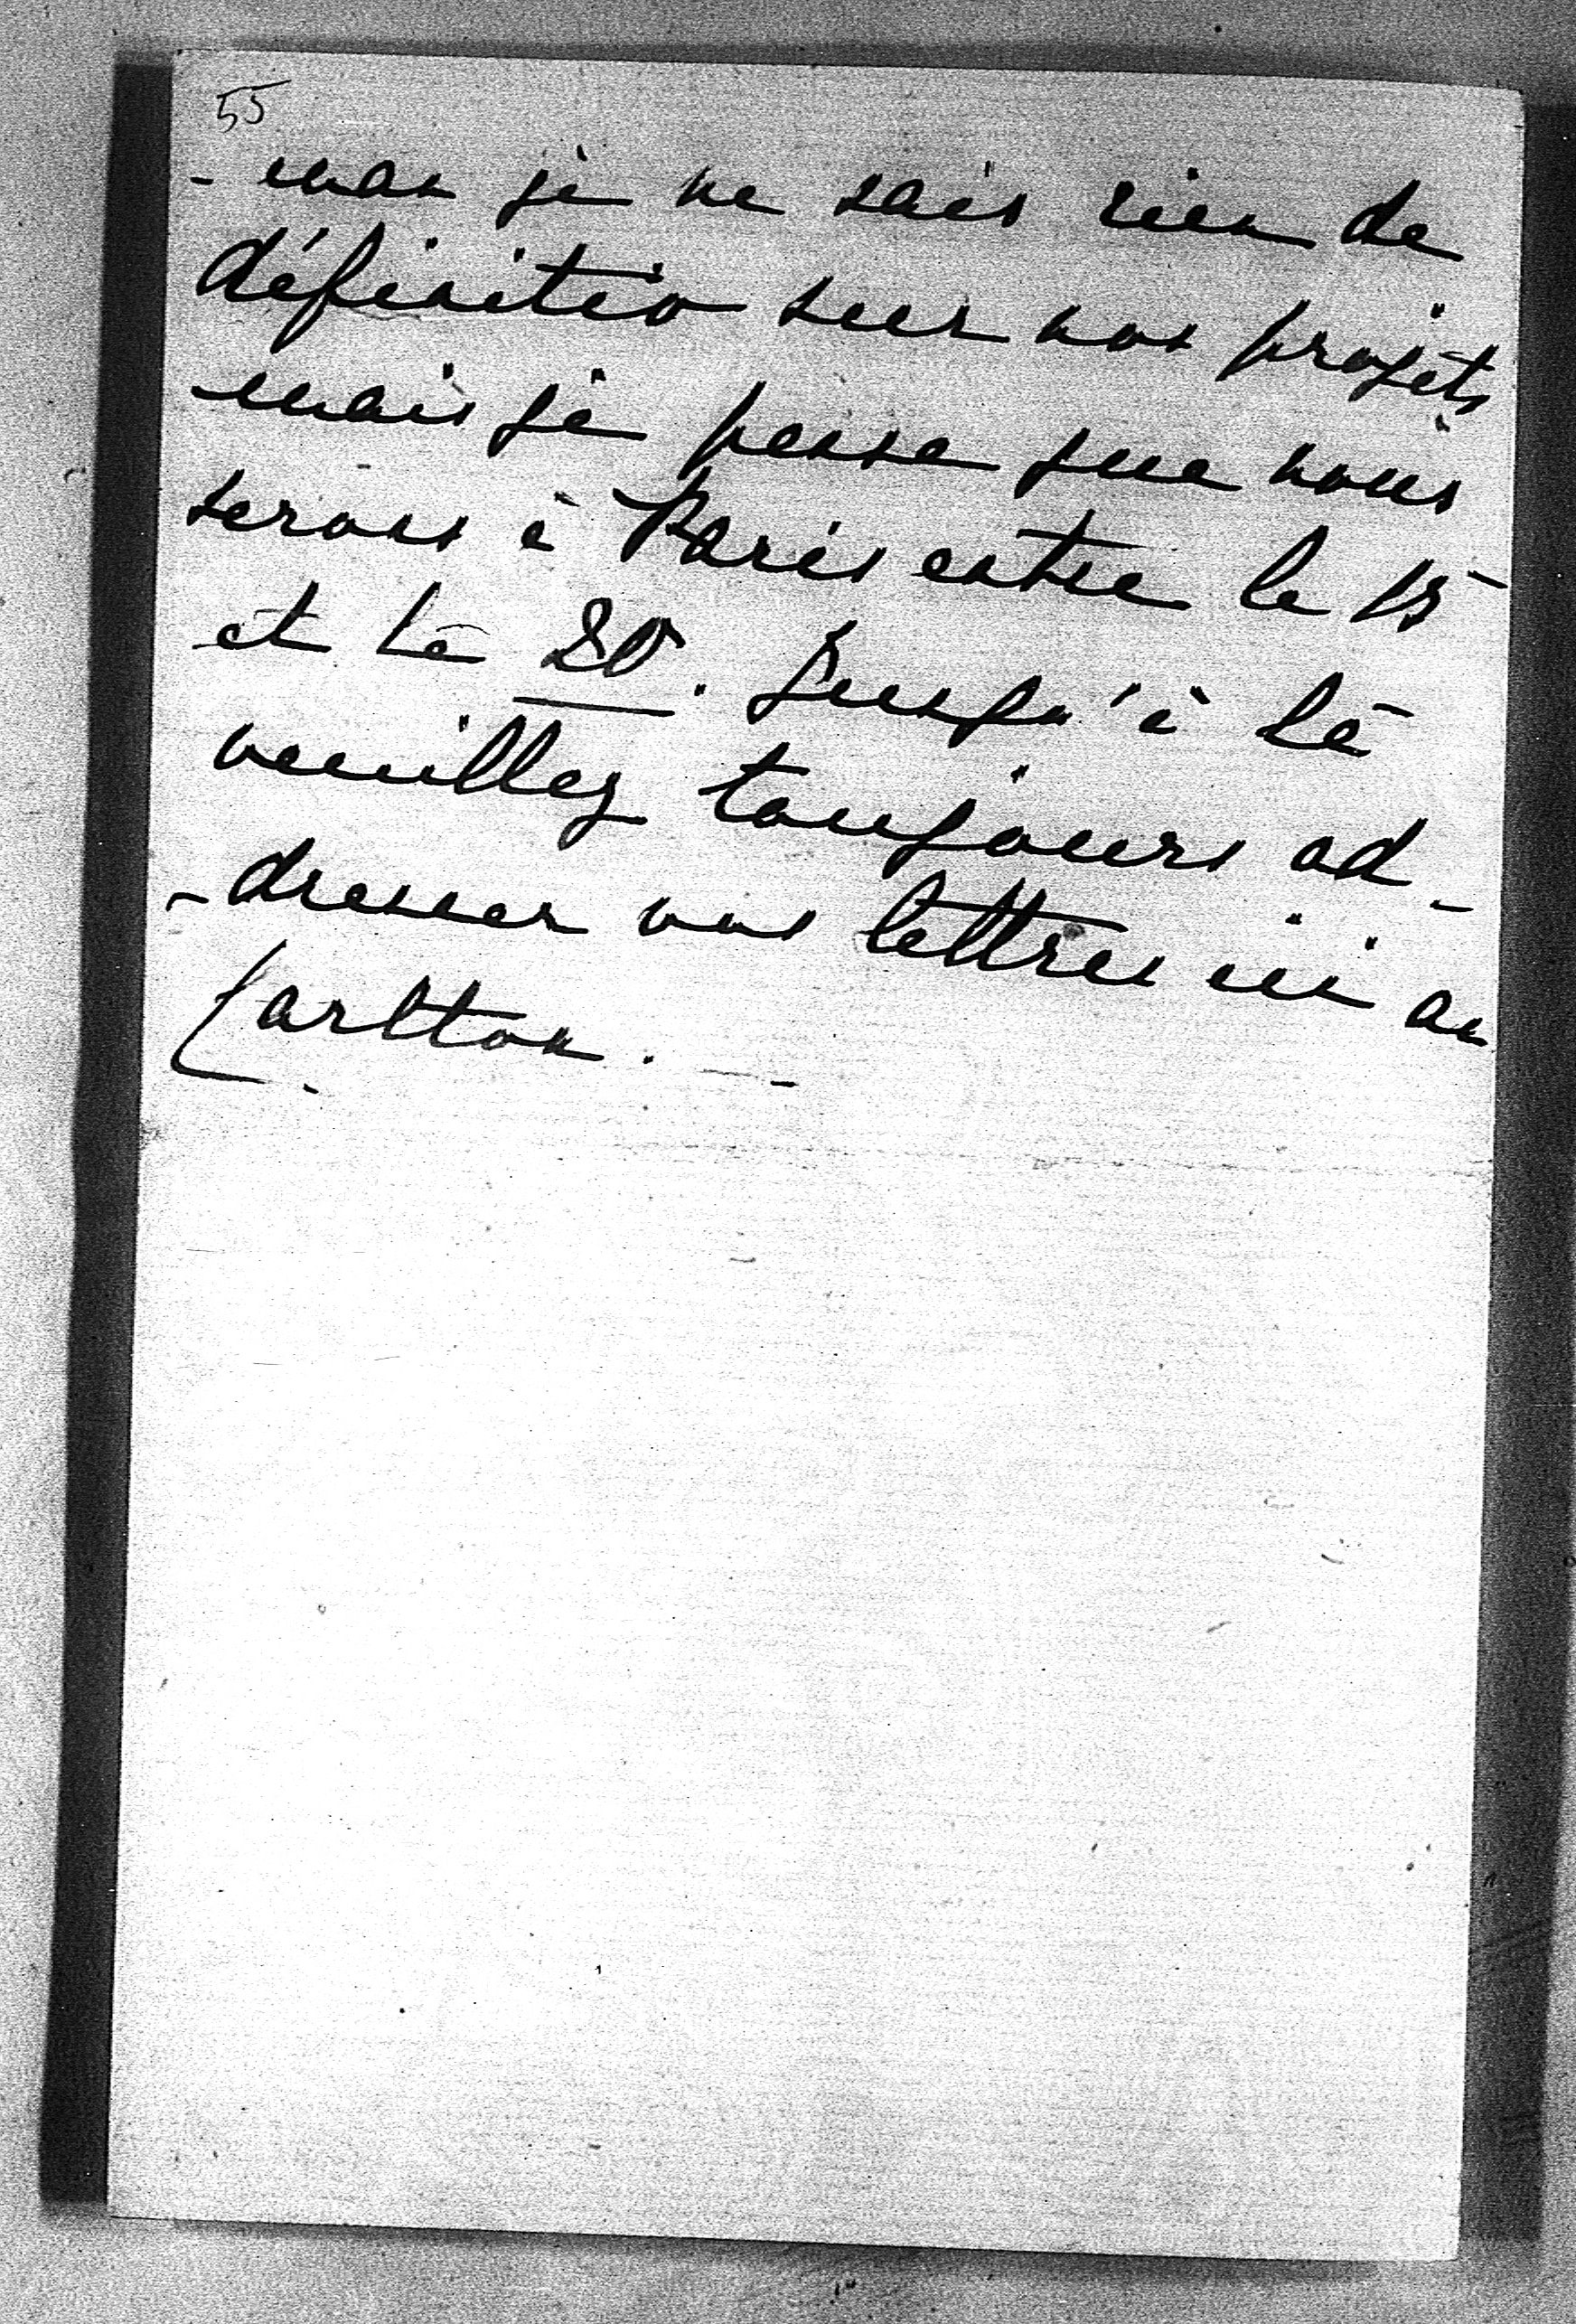 55
- man je ne sais rien de
définitiv sur nos projets
mais je pense que nous
serons à Paris entre le 15
et le 20. Jusqu'à là
veuillez toujours ad-
-dresser vos lettres ici au
Carlton. -